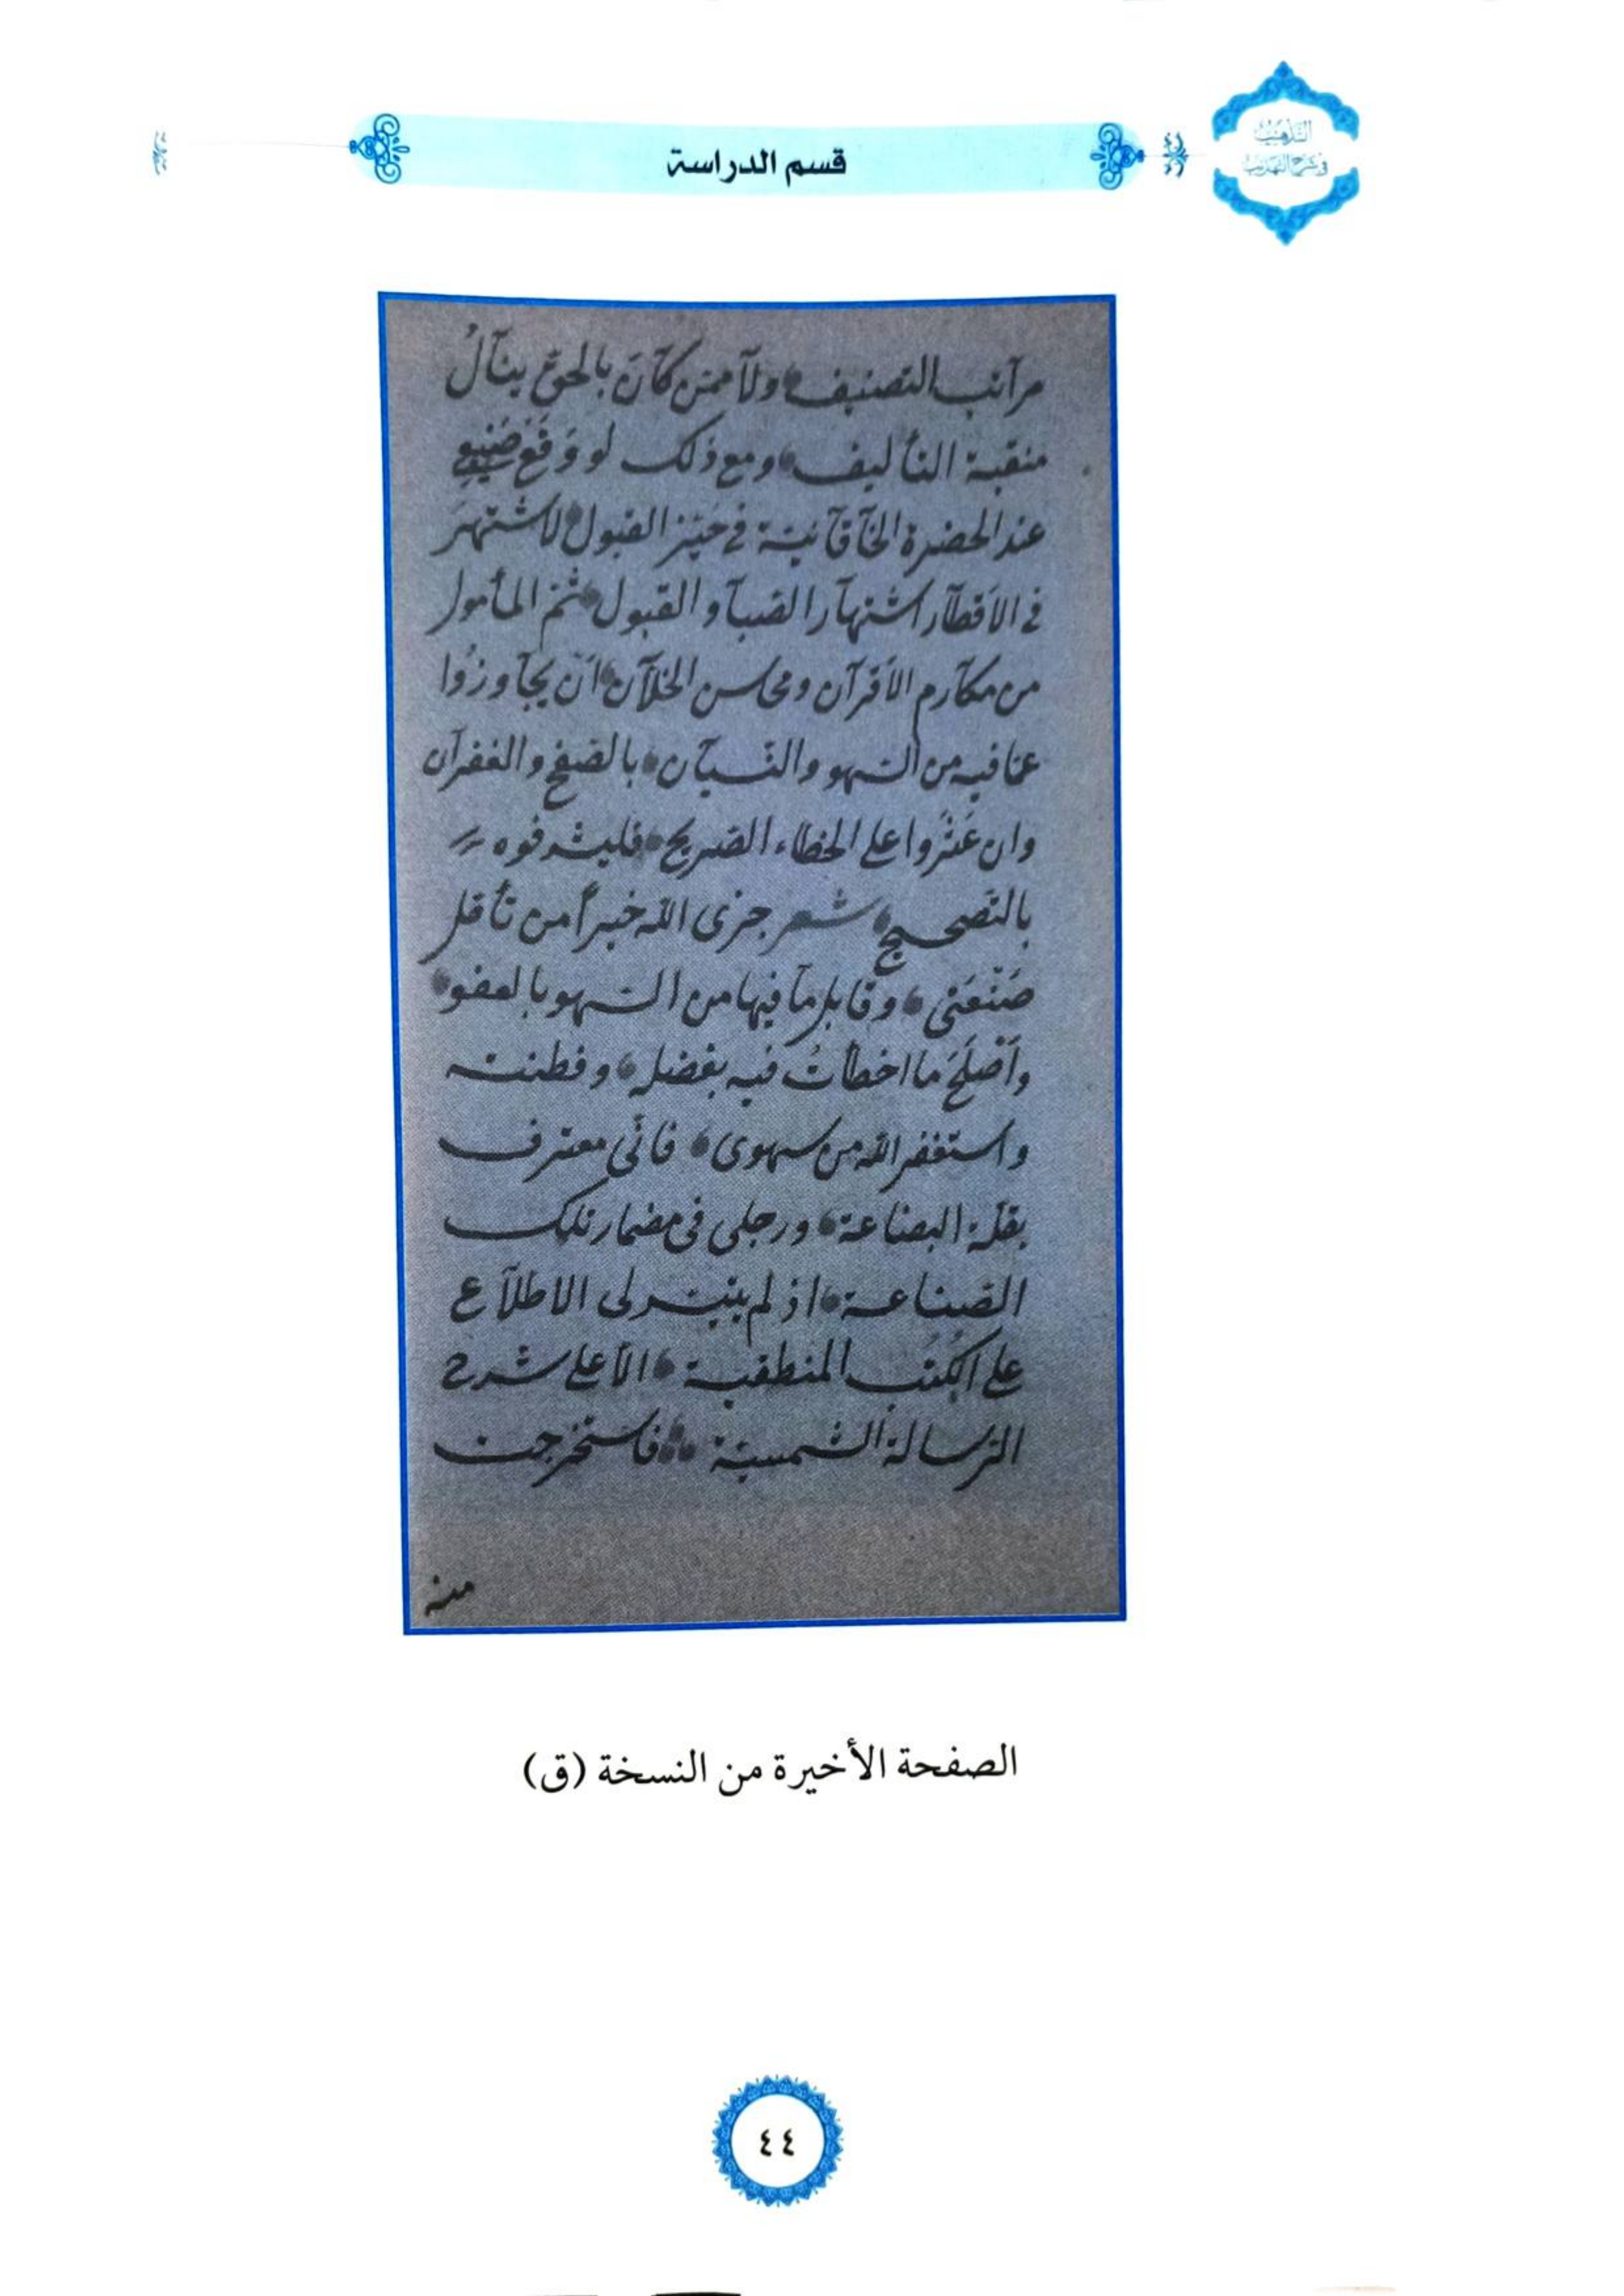 التذهيب
في شرح التهذيب
قسم الدراسة
مراتب التصنيف ولا ممن كان بالحق ينال
منقبة التأليف ومع ذلك لو وقع
عند الحضرة الخاقانية في حيز القبول لاشتهر
في الأقطار اشتهار الصبا والقبول ثم المأمول
من مكارم الأقران ومحاسن الخلان ان يجاوزوا
عما فيه من السهو والنسيان بالصفح والغفران
وان عثروا على الخطاء الصريح فليشرفوه
بالتصحيح شعر جزى الله خيراً من تأمل
صنعتى وقابل ما فيها من السهو بالعفو
وأصلح ما اخطأت فيه بفضله وفطنته
واستغفر الله من سهوى فانى معترف
بقلة البضاعة ورجلى فى مضمار تلك
الصناعة اذ لم يتيسر لى الاطلاع
على الكتب المنطقية الا على شرح
الرسالة الشمسية فاستخرجت
منه
الصفحة الأخيرة من النسخة (ق)
٤٤